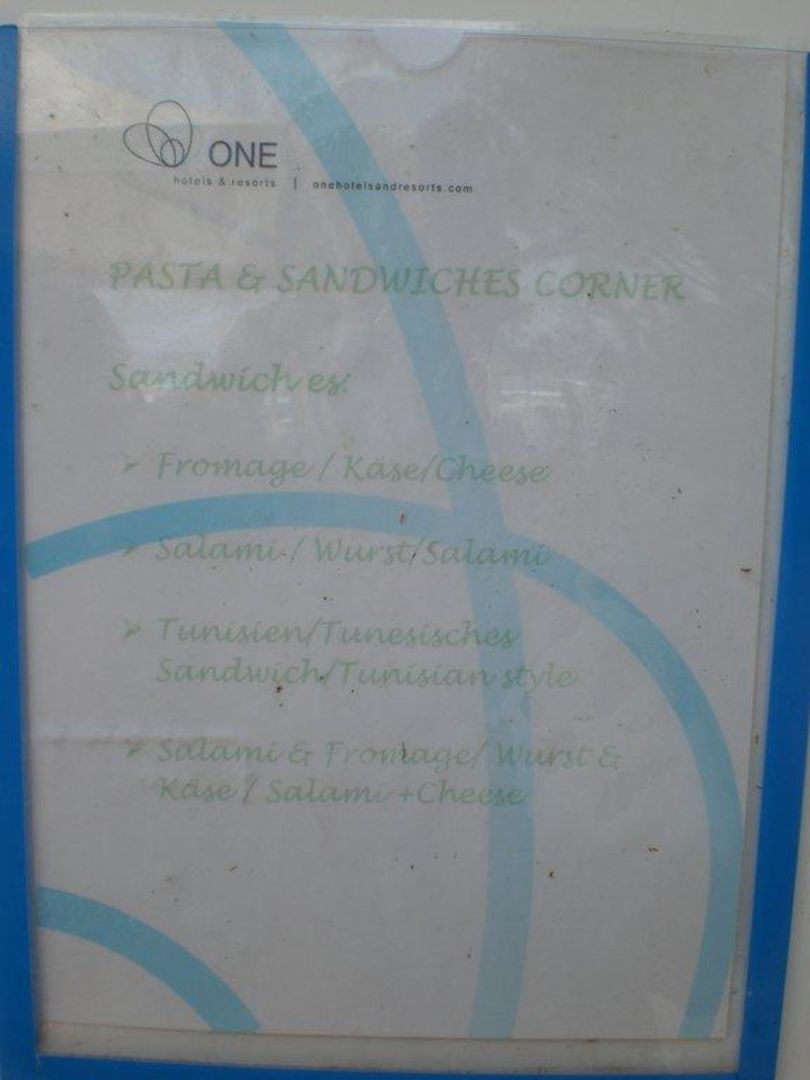 ONE
hotels & resorts | onehotelsandresorts.com
PASTA & SANDWICHES CORNER
Sandwiches:
➢ Fromage / Käse/Cheese
➢ Salami / Wurst/Salami
➢ Tunisien/Tunesisches
Sandwich/Tunisian style
➢ Salami & Fromage/ Wurst &
Käse / Salami +Cheese